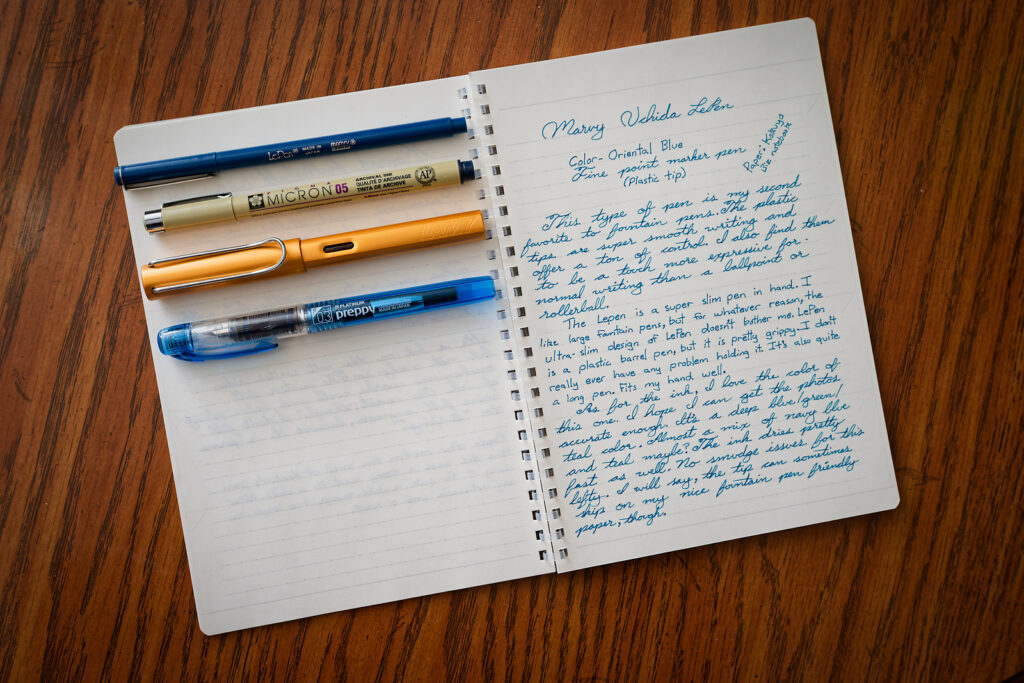 LePen
MADE IN
JAPAN
marvy
PIGMA
MICRON 05
ARCHIVAL INK
QUALITÉ D'ARCHIVAGE
TINTA DE ARCHIVE
AP
03
PLATINUM
preppy
MADE IN JAPAN
Marvy Uchida LePen
Color- Oriental Blue
Fine point marker pen
(Plastic tip)
Paper- Kokuyo
notebook
This type of pen is my second
favorite to fountain pens. The plastic
tips are super smooth writing and
offer a ton of control. I also find them
to be a touch more expressive for
normal writing than a ballpoint or
rollerball.
The Lepen is a super slim pen in hand. I
like large fantain pens, but for whatever reason, the
ultra-slim design of LePen doesn't bother me. LePen
is a plastic barrel pen, but it is pretty grippy. I don't
really ever have any problem holding it. It's also quite
a long pen. Fits my hand well.
As for the ink, I love the color of
this one. I hope I can get the photos
accurate enough. It's a deep blue/green/
teal color. Almost a mix of navy blue
and teal maybe? The ink dries pretty
fast as well. No smudge issues for this
lefty. I will say, the tip can sometimes
skip on my nice fountain pen friendly
paper, though.